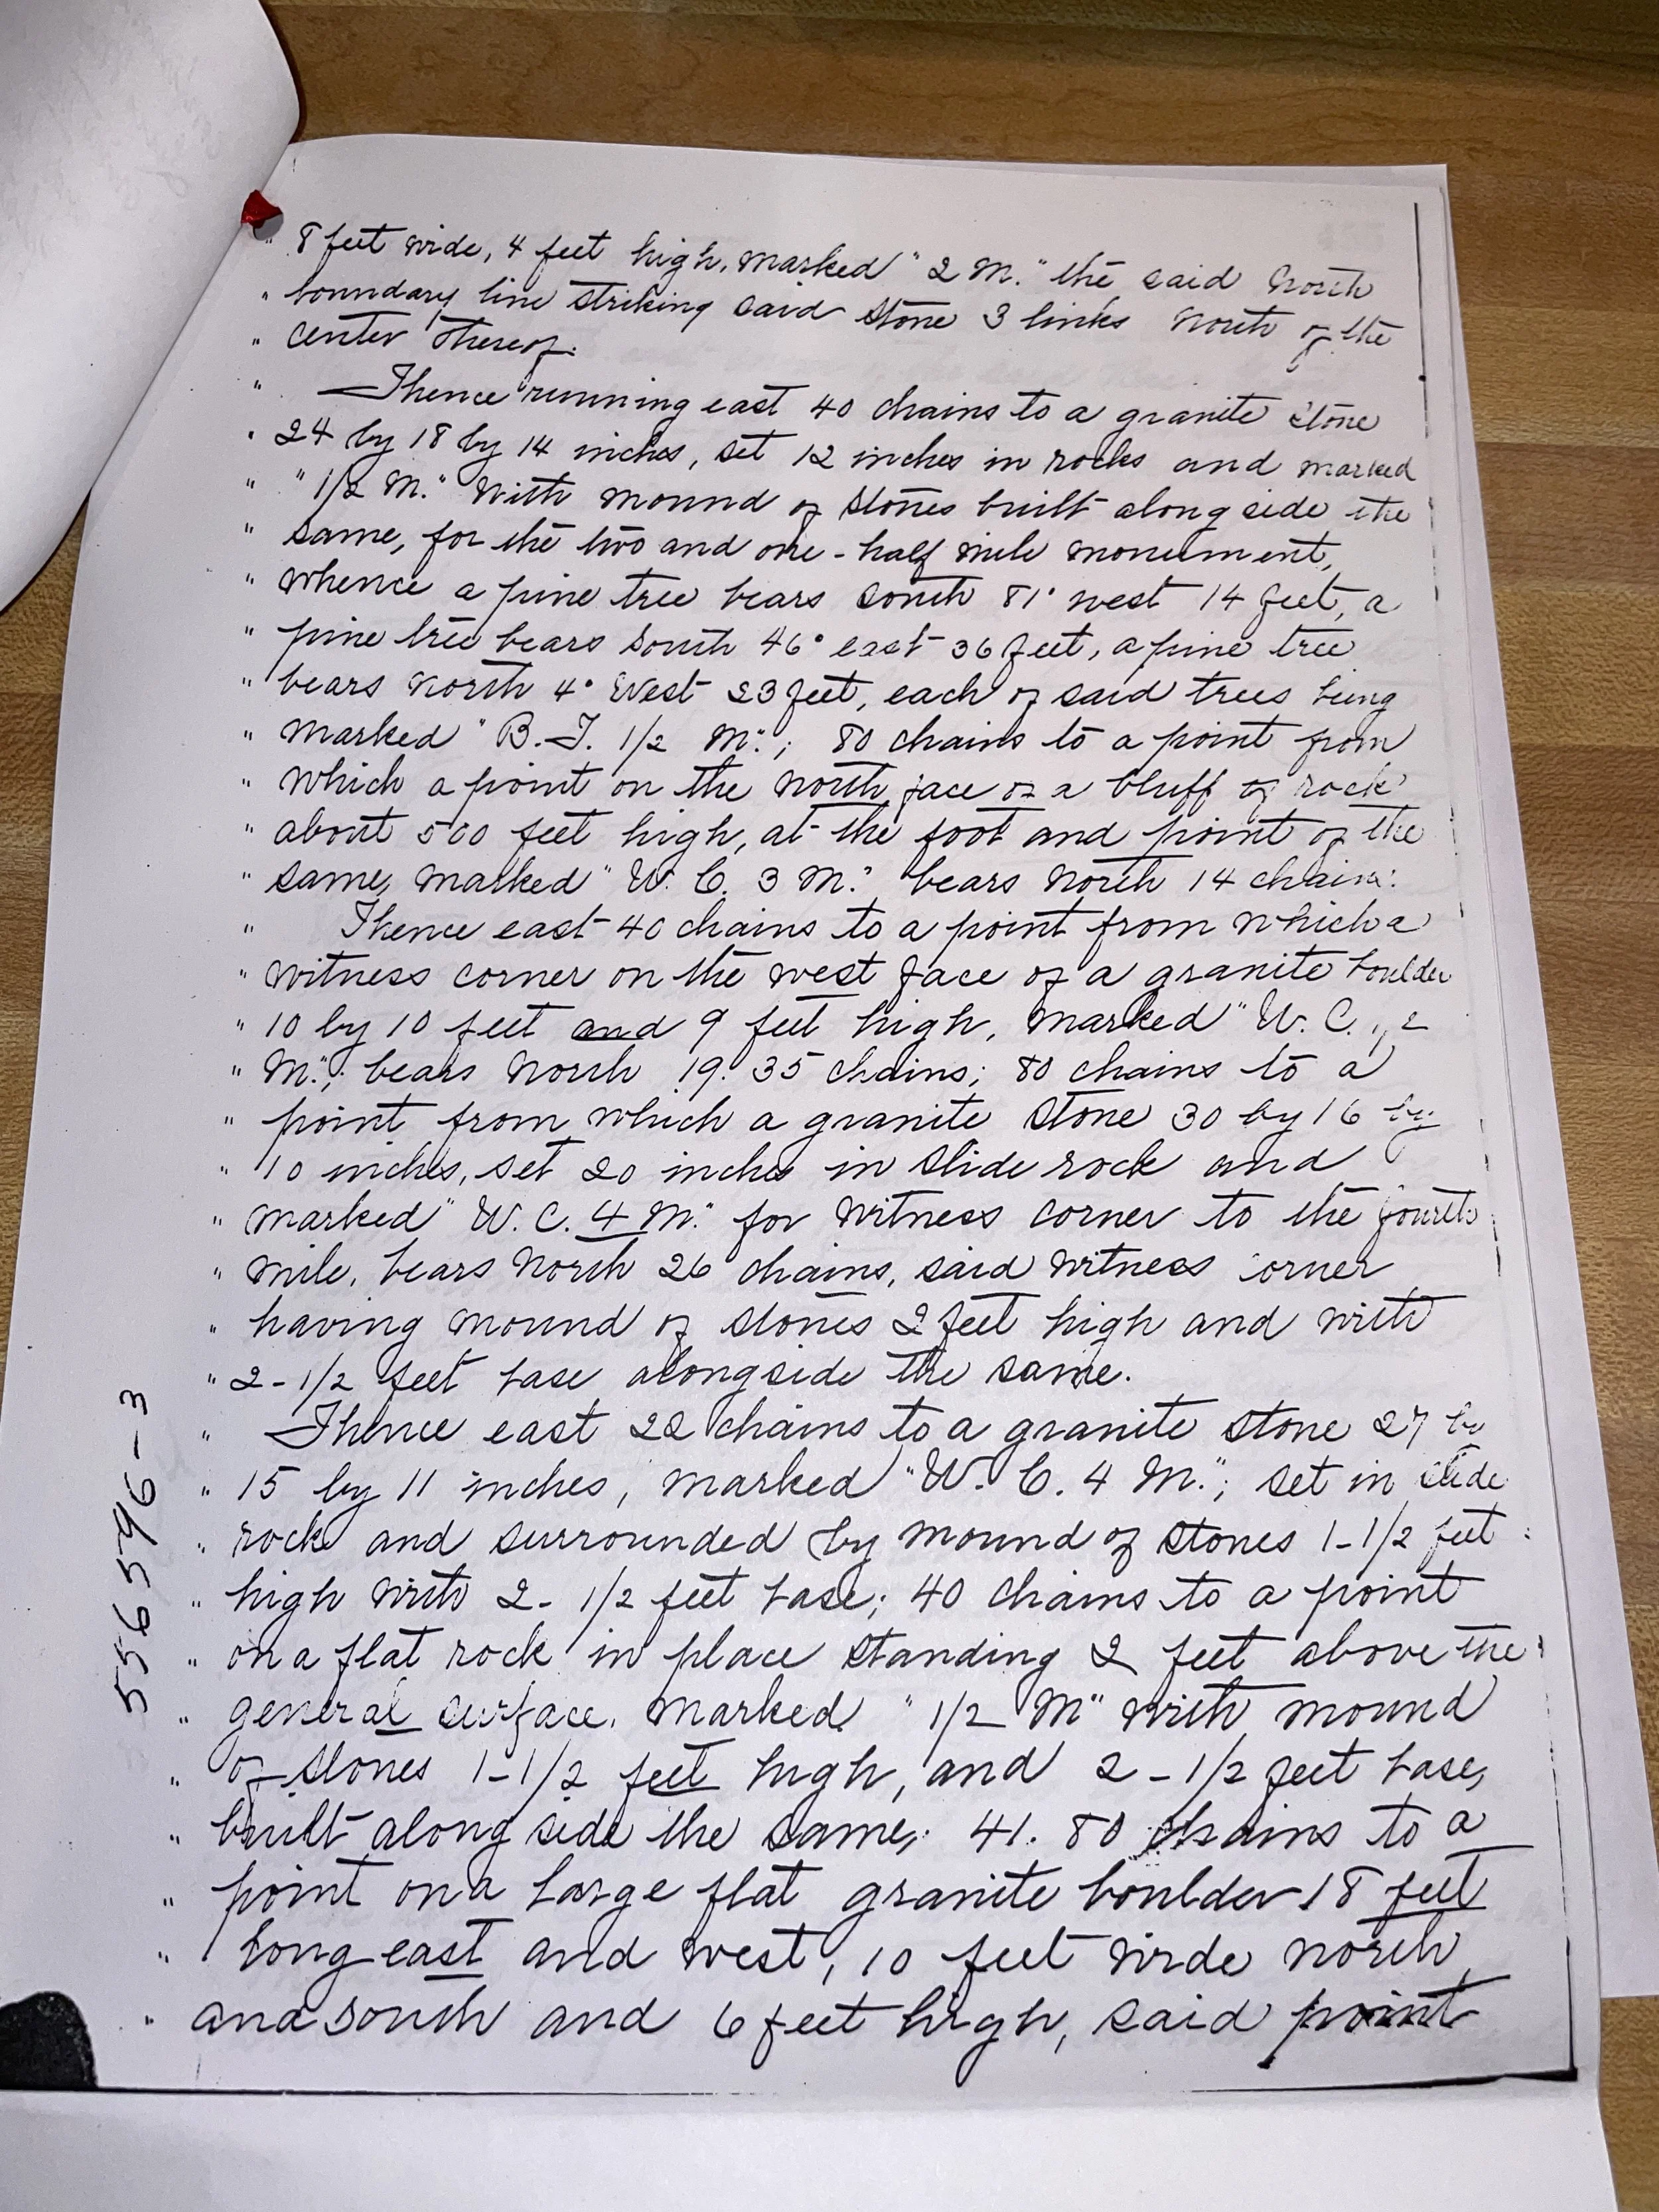 " 8 feet wide, 4 feet high, marked "2 M." the said north
" boundary line striking said stone 3 links north of the
" center thereof.
" Thence running east 40 chains to a granite stone
" 24 by 18 by 14 inches, set 12 inches in rocks and marked
" "1/2 M." with mound of stones built along side the
" same, for the two and one-half mile monument,
" whence a pine tree bears south 81° west 14 feet, a
" pine tree bears south 46° east 36 feet, a pine tree
" bears north 4° west 23 feet, each of said trees being
" marked "B.T. 1/2 M."; 80 chains to a point from
" which a point on the north face of a bluff of rock
" about 500 feet high, at the foot and point of the
" same, marked "W. C. 3 M." bears north 14 chains.
" Thence east 40 chains to a point from which a
" witness corner on the west face of a granite boulder
" 10 by 10 feet and 9 feet high, marked "W. C. 1/2
" M."; bears north 19.35 chains; 80 chains to a
" point from which a granite stone 30 by 16 by
" 10 inches, set 20 inches in slide rock and
" marked "W. C. 4 M." for witness corner to the fourth
" mile, bears north 26 chains, said witness corner
" having mound of stones 2 feet high and with
" 2-1/2 feet base alongside the same.
" Thence east 22 chains to a granite stone 27 by
" 15 by 11 inches, marked "W. C. 4 M."; set in slide
" rock and surrounded by mound of stones 1-1/2 feet
" high with 2-1/2 feet base; 40 chains to a point
" on a flat rock in place standing 2 feet above the
" general surface, marked "1/2 M" with mound
" of stones 1-1/2 feet high, and 2-1/2 feet base,
" built along side the same; 41.80 chains to a
" point on a large flat granite boulder 18 feet
" long east and west, 10 feet wide north
" and south and 6 feet high, said point
556596-3